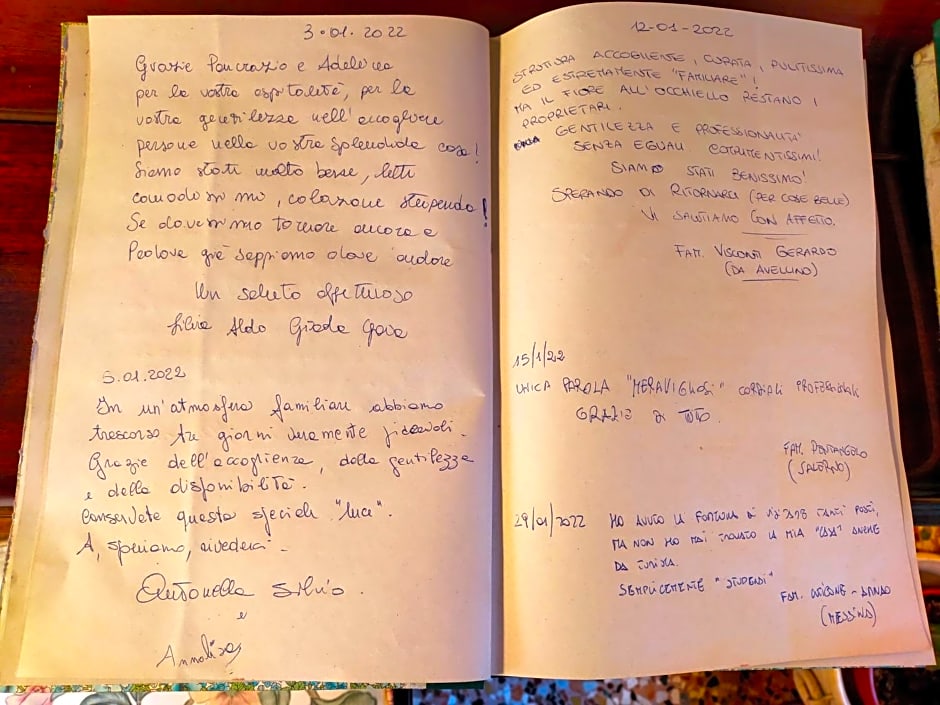 3.01.2022
Grazie Pancrazio e Adelina
per la vostra ospitalità, per la
vostra gentilezza nell'accogliere
persone nella vostra splendida casa!
Siamo stati molto bene, letti
comodissimi, colazione stupenda!
Se dovessimo tornare ancora a
già sappiamo dove andare
Un saluto affettuoso
Silvia Aldo Giada
5.01.2022
In un'atmosfera familiare abbiamo
trascorso tre giorni veramente piacevoli.
Grazie dell'accoglienza, della gentilezza
e della disponibilità.
Conservate questa speciale "luce".
A, speriamo, rivederci.
Antonella Silvio
e
Annalisa
12-01-2022
STRUTTURA ACCOGLIENTE, CURATA, PULITISSIMA
ED ESTREMAMENTE "FAMILIARE"!
MA IL FIORE ALL'OCCHIELLO RESTANO I
PROPRIETARI.
GENTILEZZA E PROFESSIONALITA'
SENZA EGUALI. COMPLIMENTISSIMI!
SIAMO STATI BENISSIMO!
SPERANDO DI RITORNARCI (PER COSE BELLE)
VI SALUTIAMO CON AFFETTO.
FAM. VISCONTI GERARDO
(DA AVELLINO)
15/1/22
UNICA PAROLA "MERAVIGLIOSI" CORDIALI PROFESSIONALI
GRAZIE DI TUTTO.
FAM. PENTANGELO
(SALERNO)
29/01/2022 HO AVUTO LA FORTUNA DI VISITARE TANTI POSTI,
MA NON HO MAI TROVATO LA MIA "CASA" ANCHE
DA TURISTA.
SEMPLICEMENTE "STUPENDI"
FAM.
(MESSINA)